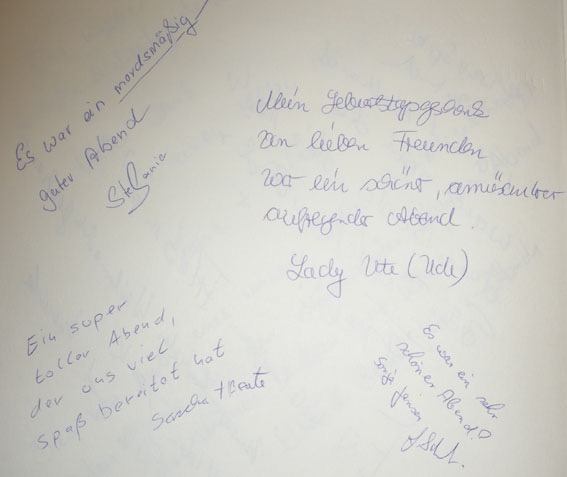 Es war ein mordsmäßig
guter Abend
Stefanie
Mein Geburtstagsgeschenk
von lieben Freunden
war ein schöner, amüsanter
aufregender Abend.
Lady Ute (Ude)
Ein super
toller Abend,
der uns viel
spaß bereitet hat
Sascha + Beate
Es war ein sehr
schöner Abend!